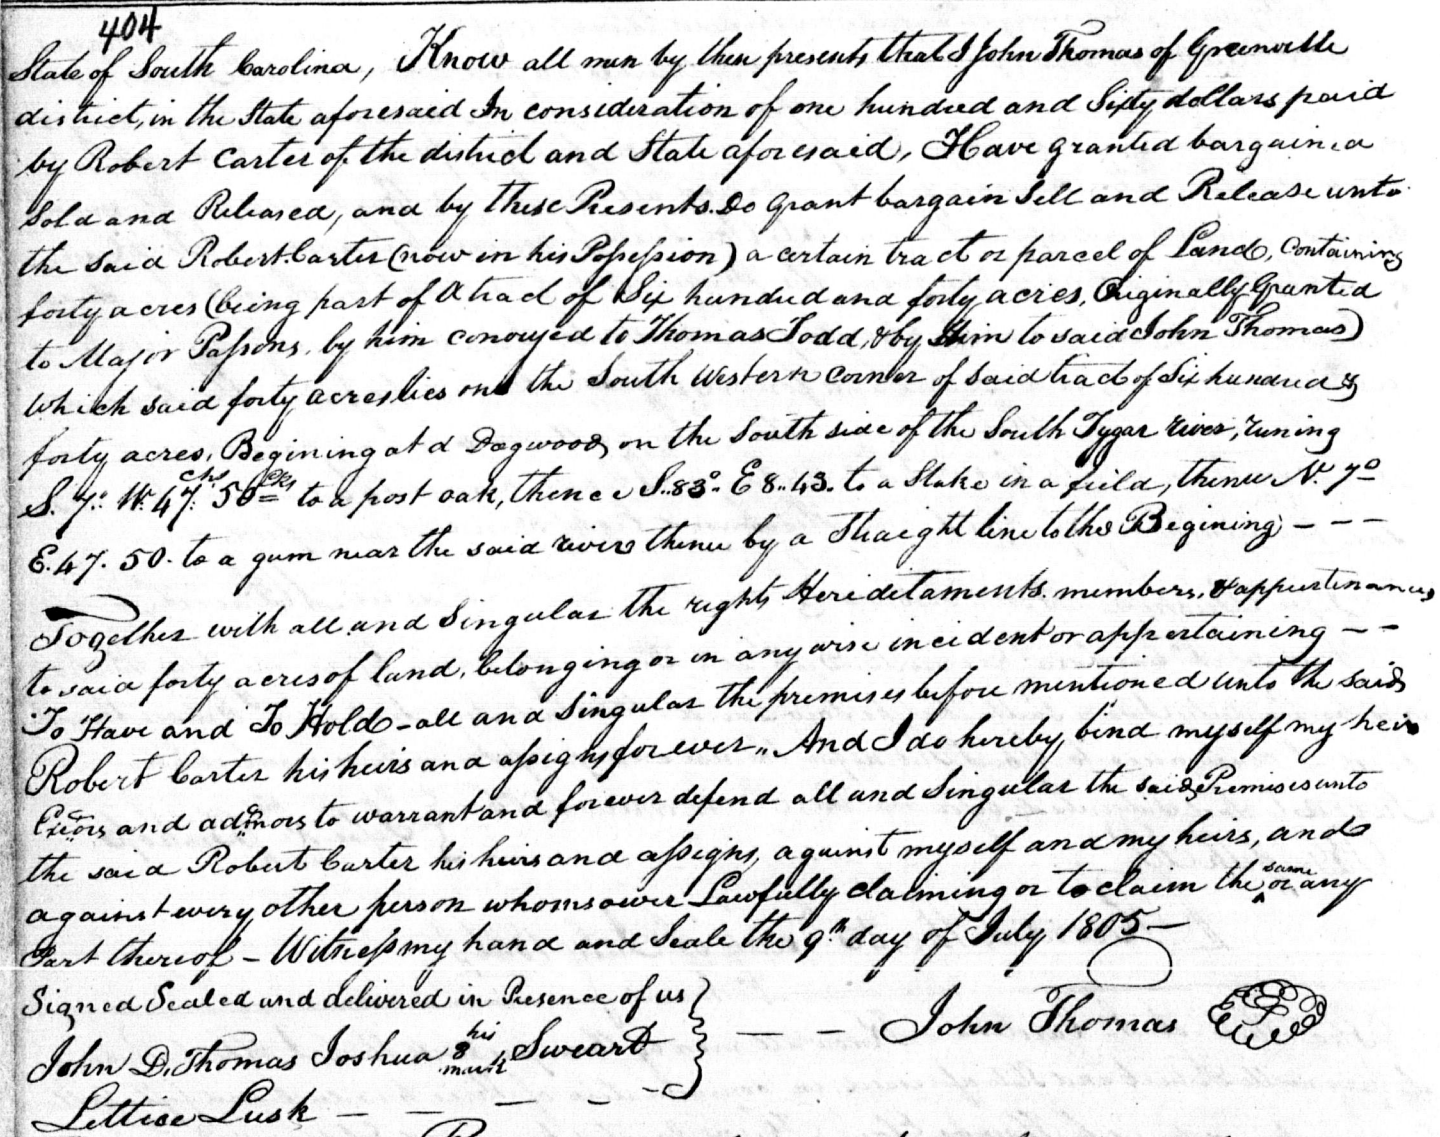 404
State of South Carolina, Know all men by these presents that I John Thomas of Greenville
district, in the State aforesaid In consideration of one hundred and Sixty dollars paid
by Robert Carter of the district and State aforesaid, Have granted bargained
Sold and Released, and by these Presents. Do grant bargain Sell and Release unto
the said Robert Carter (now in his Possession) a certain tract or parcel of Land, Containing
forty acres (being part of A tract of Six hundred and forty acres, Originally Granted
to Major Parsons, by him conveyed to Thomas Todd, & by Him to said John Thomas)
Which said forty acres lies on the South Western corner of said tract of Six hundred &
forty acres, Begining at a Dogwood, on the South side of the South Tygar river, runing
S. 7.° W. 47. chs 50 lks to a post oak, thence S. 83° E 8..43. to a Stake in a field, thence N. 7°
E. 47. 50. to a gum near the said river thence by a Straight line to the Begining - - -
Together with all and Singular the rights Hereditaments. members, & appurtenances
to said forty acres of land, belonging or in any wise incident or appertaining - -
To Have and To Hold - all and Singular the premises before mentioned unto the said
Robert Carter his heirs and assigns for ever,, And I do hereby bind myself my heirs
Exeors and admors to warrant and forever defend all and Singular the said Premises unto
the said Robert Carter his heirs and assigns, against myself and my heirs, and
against every other person whomsoever Lawfully claiming or to claim the ^ same or any
Part thereof - Witness my hand and Seale the 9th day of July 1805 -
Signed Sealed and delivered in Presence of us
John D. Thomas Joshua his 8 mark Sweart - - John Thomas
Lettice Lusk - - - - -